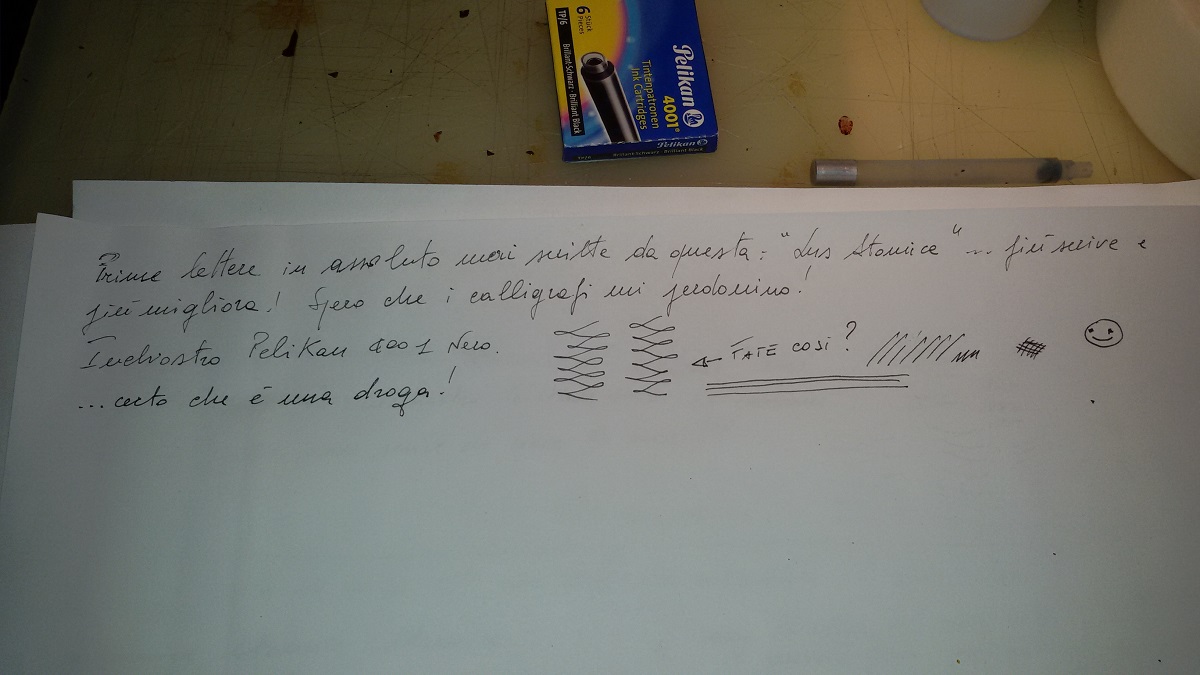 6 Stück
Pieces
TP/6
Brillant-Schwarz · Brilliant Black
Pelikan
4001®
Tintenpatronen
Ink Cartridges
Pelikan
TP/6 Brillant-Schwarz · Brilliant Black
Prime lettere in assoluto mai scritte da questa: "Lus Atomica" ... più scrive e
più migliora! Spero che i calligrafi mi perdonino!
Inchiostro Pelikan 4001 Nero.
FATE COSÌ?
...certo che è una droga!